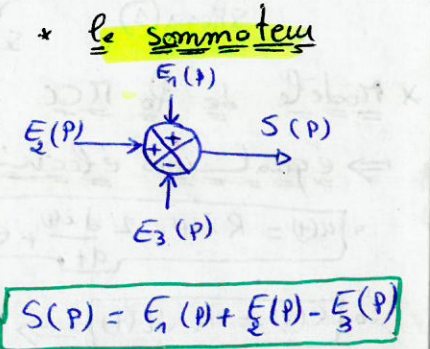 * le sommateur
E₁(P)
E₂(P)
S(P)
+
+
-
E₃(P)
S(P) = E₁(P) + E₂(P) - E₃(P)